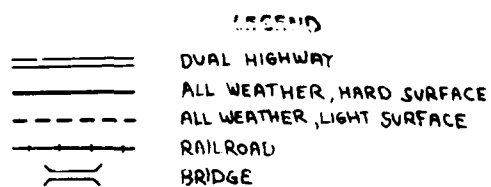 LEGEND
DUAL HIGHWAY
ALL WEATHER, HARD SURFACE
ALL WEATHER, LIGHT SURFACE
RAILROAD
BRIDGE